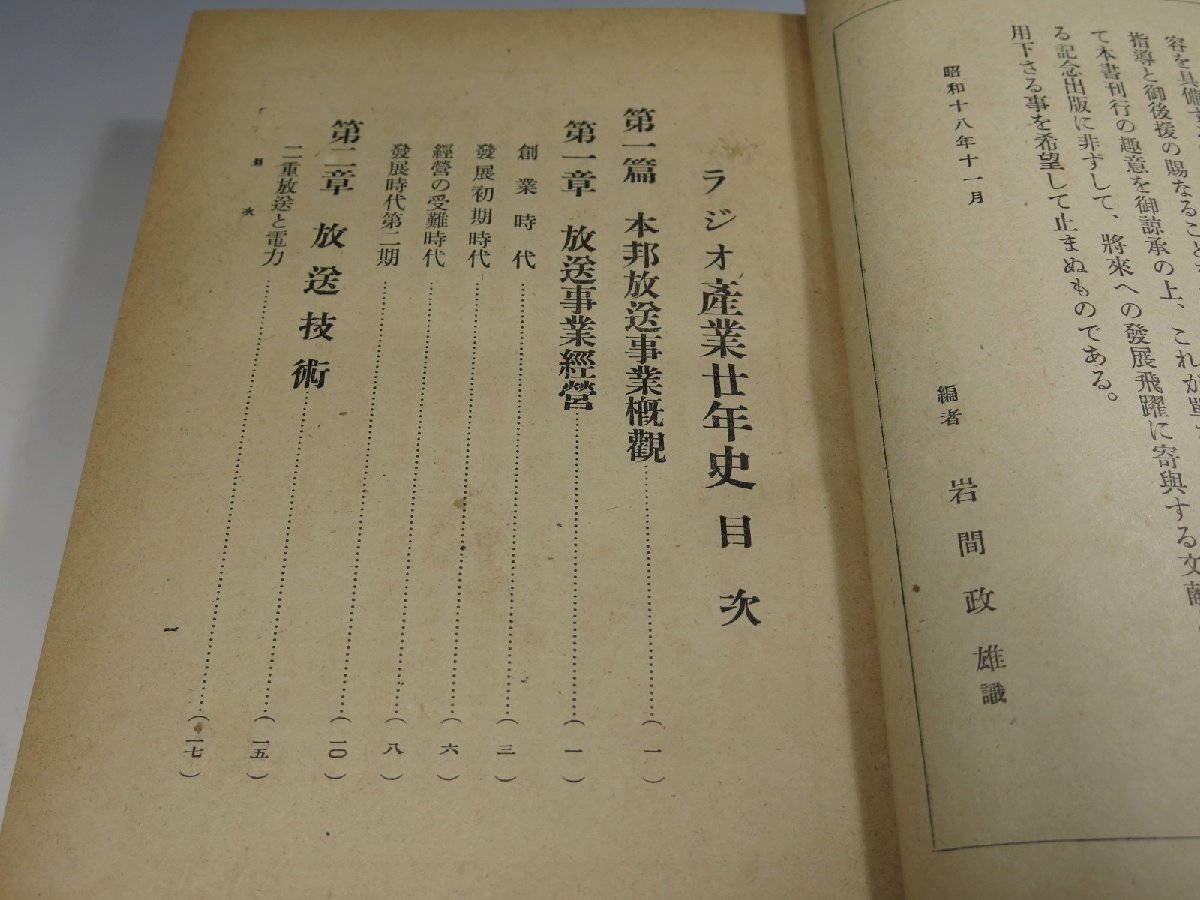 指導と御後援の賜なること
て本書刊行の趣意を御諒承の上、これが單
る記念出版に非ずして、將來への發展飛躍に寄與する文獻
用下さる事を希望して止まぬものである。
昭和十八年十一月
編者 岩間政雄識
ラジオ產業廿年史 目次
第一篇 本邦放送事業概觀……(一)
第一章 放送事業經營……(一)
創業時代……(三)
發展初期時代……(六)
經營の受難時代……(八)
發展時代第二期……(一〇)
第二章 放送技術……(一五)
二重放送と電力……(一七)
目次
一